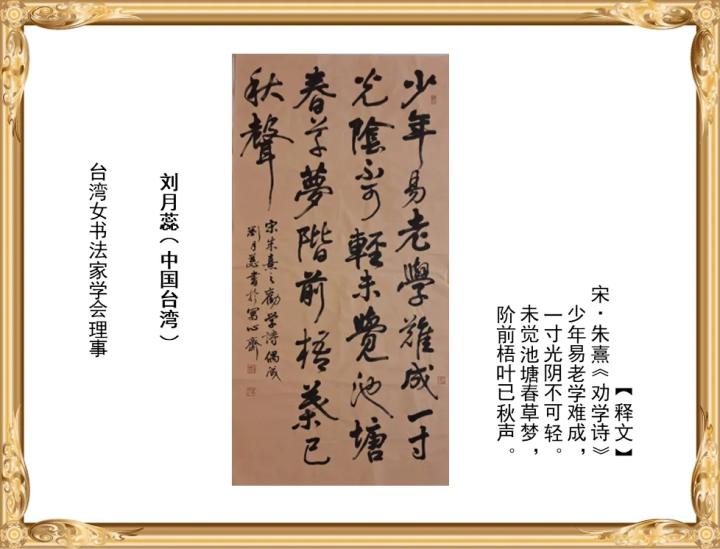 【释文】
宋·朱熹《劝学诗》
少年易老学难成，
一寸光阴不可轻。
未觉池塘春草梦，
阶前梧叶已秋声。
少年易老學難成一寸
光陰不可輕未覺池塘
春草夢階前梧葉已
秋聲
宋朱熹之勸學詩偶成
劉月蕊書於寫心齋
刘月蕊（中国台湾）
台湾女书法家学会理事